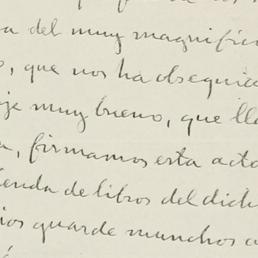 a del muy magnífic
, que nos ha obsequia
je muy bueno, que lle
a, firmamos esta acta
ienda de libros del dich
ios guarde munchos a